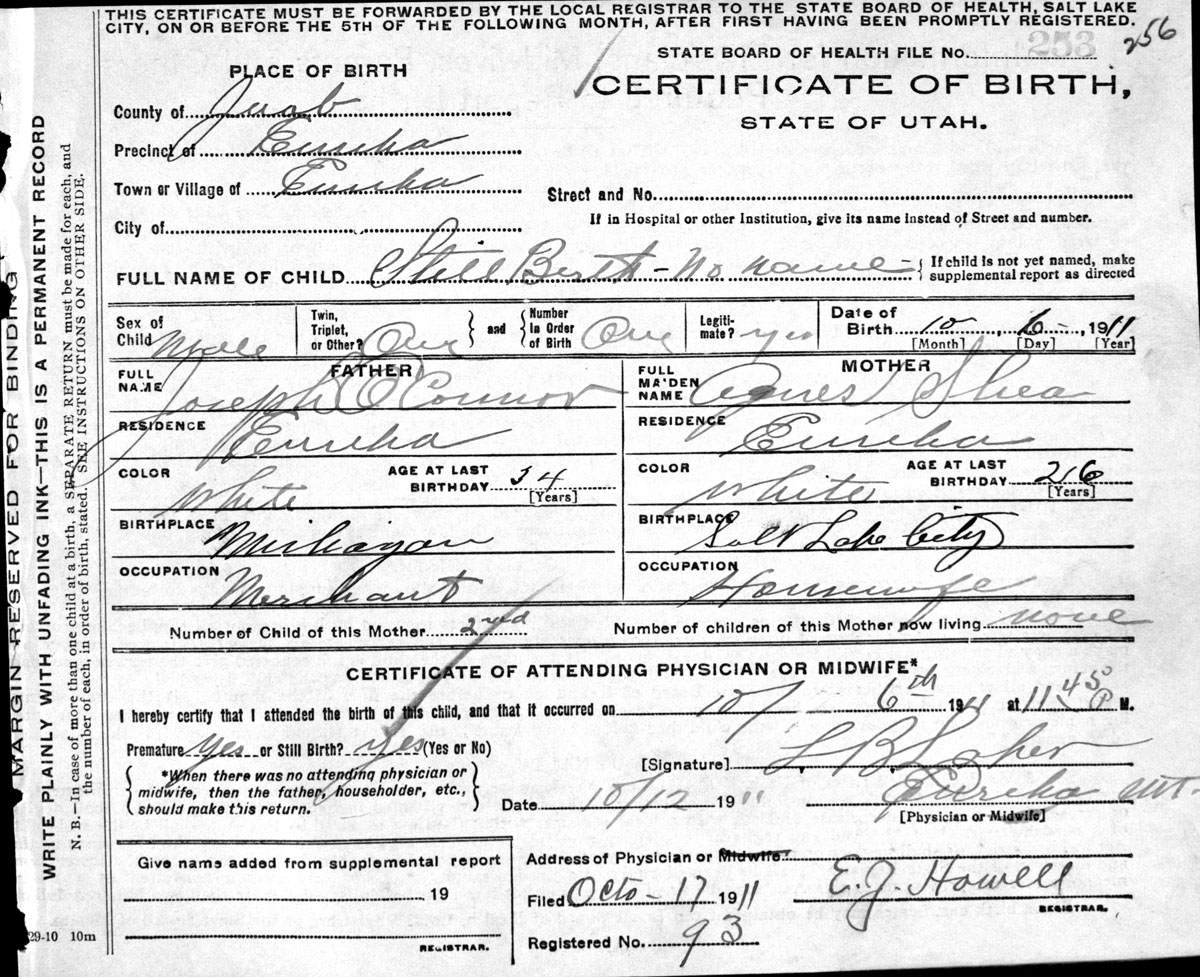 THIS CERTIFICATE MUST BE FORWARDED BY THE LOCAL REGISTRAR TO THE STATE BOARD OF HEALTH, SALT LAKE
CITY, ON OR BEFORE THE 5TH OF THE FOLLOWING MONTH, AFTER FIRST HAVING BEEN PROMPTLY REGISTERED.
256
STATE BOARD OF HEALTH FILE No. 253
PLACE OF BIRTH
CERTIFICATE OF BIRTH,
STATE OF UTAH.
County of Juab
Precinct of Eureka
Town or Village of Eureka
Street and No.
City of
If in Hospital or other Institution, give its name instead of Street and number.
FULL NAME OF CHILD Still Birth - No name - { If child is not yet named, make supplemental report as directed
Sex of Child Male Twin, Triplet, or Other? One } and { Number in Order of Birth One Legitimate? yes Date of Birth 10, 6-, 1911
[Month] [Day] [Year]
FATHER MOTHER
FULL NAME Joseph O'Connor FULL MAIDEN NAME Agnes Shea
RESIDENCE Eureka RESIDENCE Eureka
COLOR White AGE AT LAST BIRTHDAY 34 [Years] COLOR White AGE AT LAST BIRTHDAY 26 [Years]
BIRTHPLACE Michagan BIRTHPLACE Salt Lake City
OCCUPATION Merchant OCCUPATION Housewife
Number of Child of this Mother 2nd Number of children of this Mother now living none
CERTIFICATE OF ATTENDING PHYSICIAN OR MIDWIFE*
I hereby certify that I attended the birth of this child, and that it occurred on 10/ 6th 1911 at 11 45 P M.
Premature yes or Still Birth? yes (Yes or No)
[Signature] L B
{ *When there was no attending physician or midwife, then the father, householder, etc., should make this return. }
Date 10/12 19 11 Eureka Ut.
[Physician or Midwife]
Give name added from supplemental report
19
REGISTRAR.
Address of Physician or Midwife
Filed Octo - 17 1911 E. J. Howell
REGISTRAR.
Registered No. 93
29-10 10m
MARGIN RESERVED FOR BINDING
WRITE PLAINLY WITH UNFADING INK—THIS IS A PERMANENT RECORD
N. B.—In case of more than one child at a birth, a SEPARATE RETURN must be made for each, and
the number of each, in order of birth, stated. SEE INSTRUCTIONS ON OTHER SIDE.